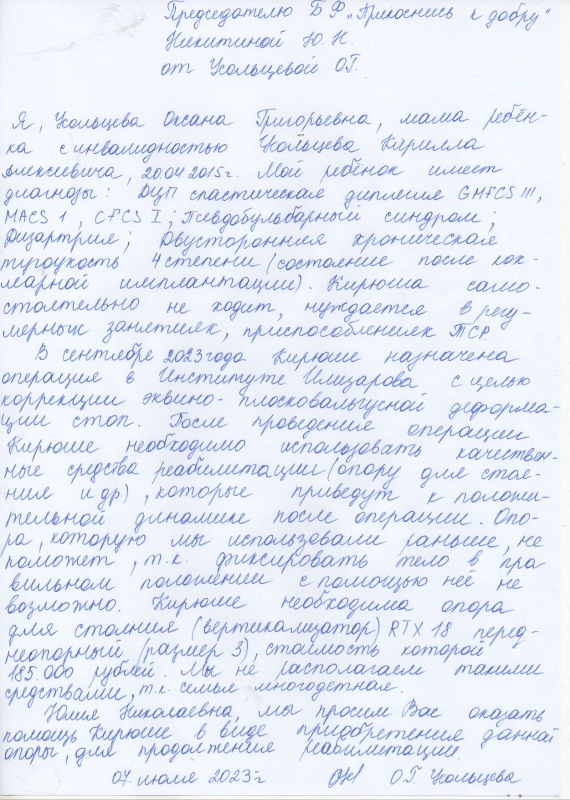 Председателю БФ „Прикоснись к добру"
Никитиной Ю.Н.
от Усольцевой О.Г.
Я, Усольцева Оксана Григорьевна, мама ребён-
ка с инвалидностью Усольцева Кирилла
Алексеевича, 20.04.2015г. Мой ребёнок имеет
диагнозы: ДЦП спастическая диплегия GMFCS III,
MACS 1, CFCS I; Псевдобульбарный синдром;
Дизартрия; Двусторонняя хроническая
тугоухость 4 степени (состояние после кох-
леарной имплантации). Кирюша само-
стоятельно не ходит, нуждается в регу-
лярных занятиях, приспособлениях ТСР.
В сентябре 2023 года Кирюше назначена
операция в Институте Илизарова с целью
коррекции эквино-плосковальгусной деформа-
ции стоп. После проведения операции
Кирюше необходимо использовать качествен-
ные средства реабилитации (опору для стоя-
ния и др), которые приведут к положи-
тельной динамике после операции. Опо-
ра, которую мы использовали раньше, не
поможет, т.к. фиксировать тело в пра
вильном положении с помощью неё не
возможно. Кирюше необходима опора
для стояния (вертикализатор) RTX 18 перед-
неопорный (размер 3), стоимость которой
185.000 рублей. Мы не располагаем такими
средствами, т.к. семья многодетная.
Юлия Николаевна, мы просим Вас оказать
помощь Кирюше в виде приобретения данной
опоры, для продолжения реабилитации.
07 июля 2023г О.Г. Усольцева